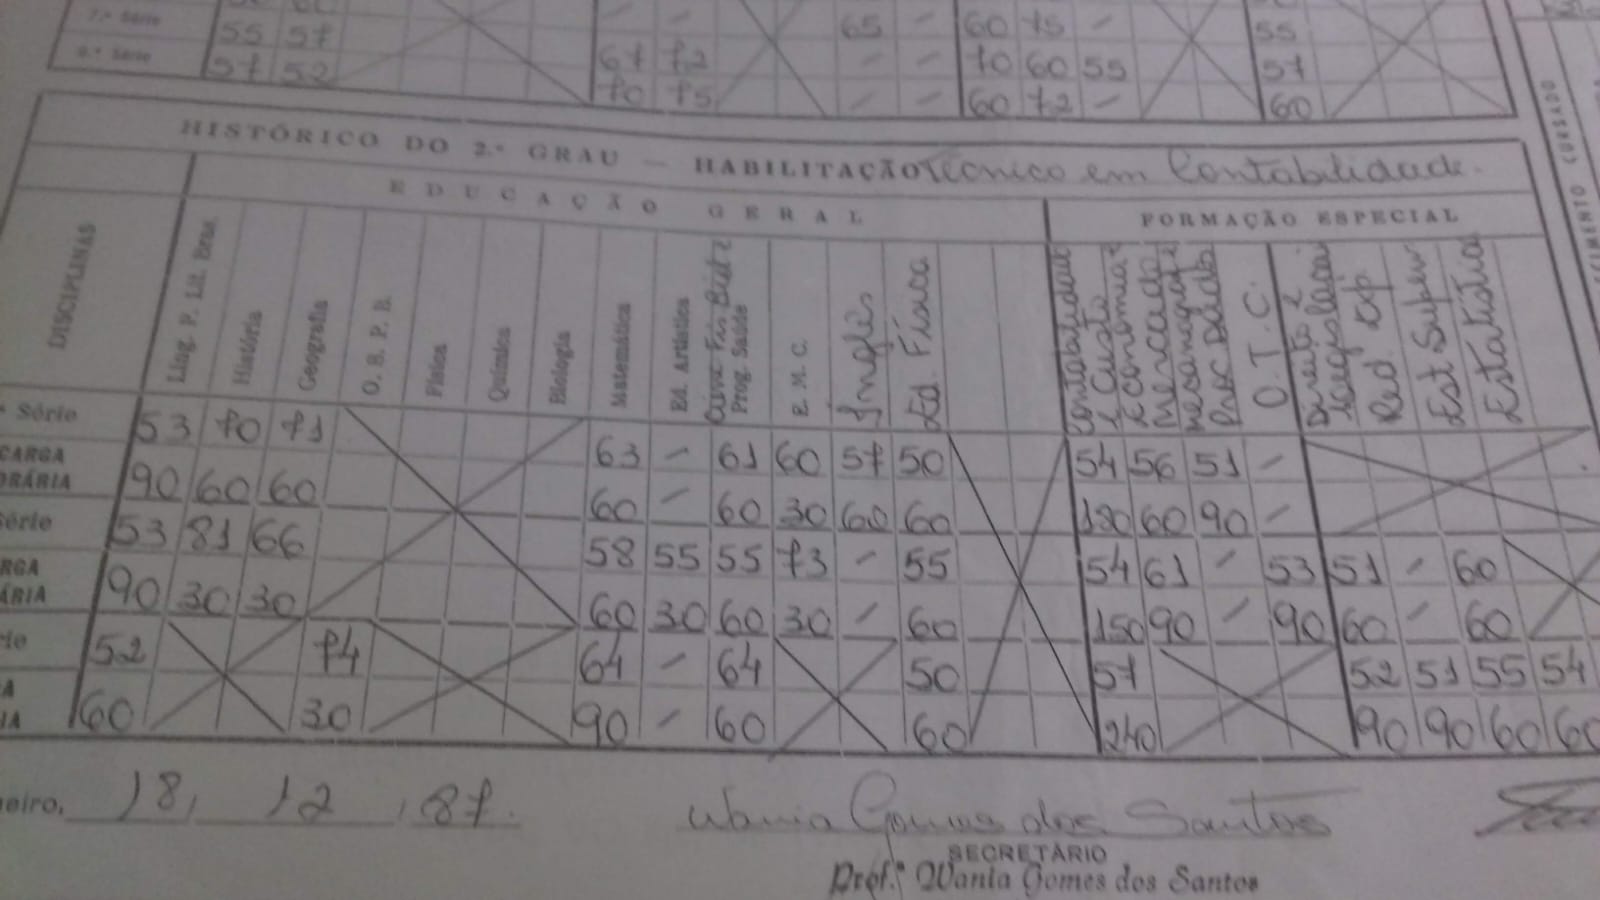 7.ª Série 55 57 — — 65 — 60 75 — 55
8.ª Série 57 52 67 72 — — 70 60 55 57
70 75 — — 60 72 — 60
HISTÓRICO DO 2.º GRAU — HABILITAÇÃO Técnico em Contabilidade.
EDUCAÇÃO GERAL FORMAÇÃO ESPECIAL
DISCIPLINAS
Ling. P. Lit. Bras.
História
Geografia
O. S. P. B.
Física
Química
Biologia
Matemática
Ed. Artística
Prog. Saúde
E. M. C.
Inglês
Ed. Física
Contabilidade
e Custo
Economia e
Mercado
Mecanografia e
Proc Dados
O. T. C.
Direito e
Legislação
Red. Exp.
Est Super
Estatística
ª Série 53 70 71 63 - 61 60 57 50 54 56 51 -
CARGA
ORÁRIA 90 60 60 60 - 60 30 60 60 180 60 90 -
Série 53 81 66 58 55 55 73 - 55 54 61 - 53 51 - 60
RGA
ÁRIA 90 30 30 60 30 60 30 - 60 150 90 - 90 60 - 60
rie 52 74 64 - 64 50 57 52 51 55 54
A
IA 60 30 90 - 60 60 240 90 90 60 60
neiro, 18, 12, 87. Wania Gomes dos Santos
SECRETÁRIO
Prof.ª Wania Gomes dos Santos